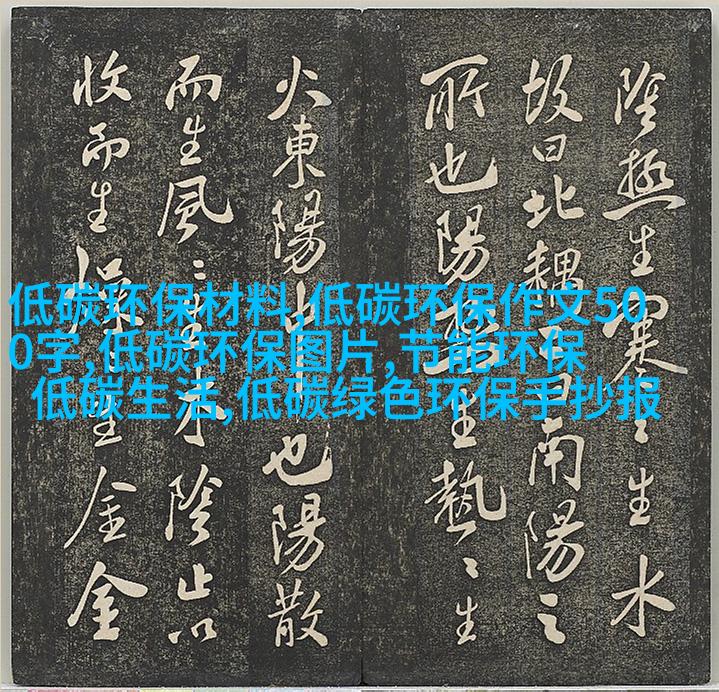 低碳环保材料,低碳环保作文50
0字,低碳环保图片,节能环保
低碳生活,低碳绿色环保手抄报
陰極生寒〻生水
故曰北耦曰南陽之
所也陽極生熱〻生
火東陽也陽散
而生風〻生木陰止以
收而生燥〻生金金